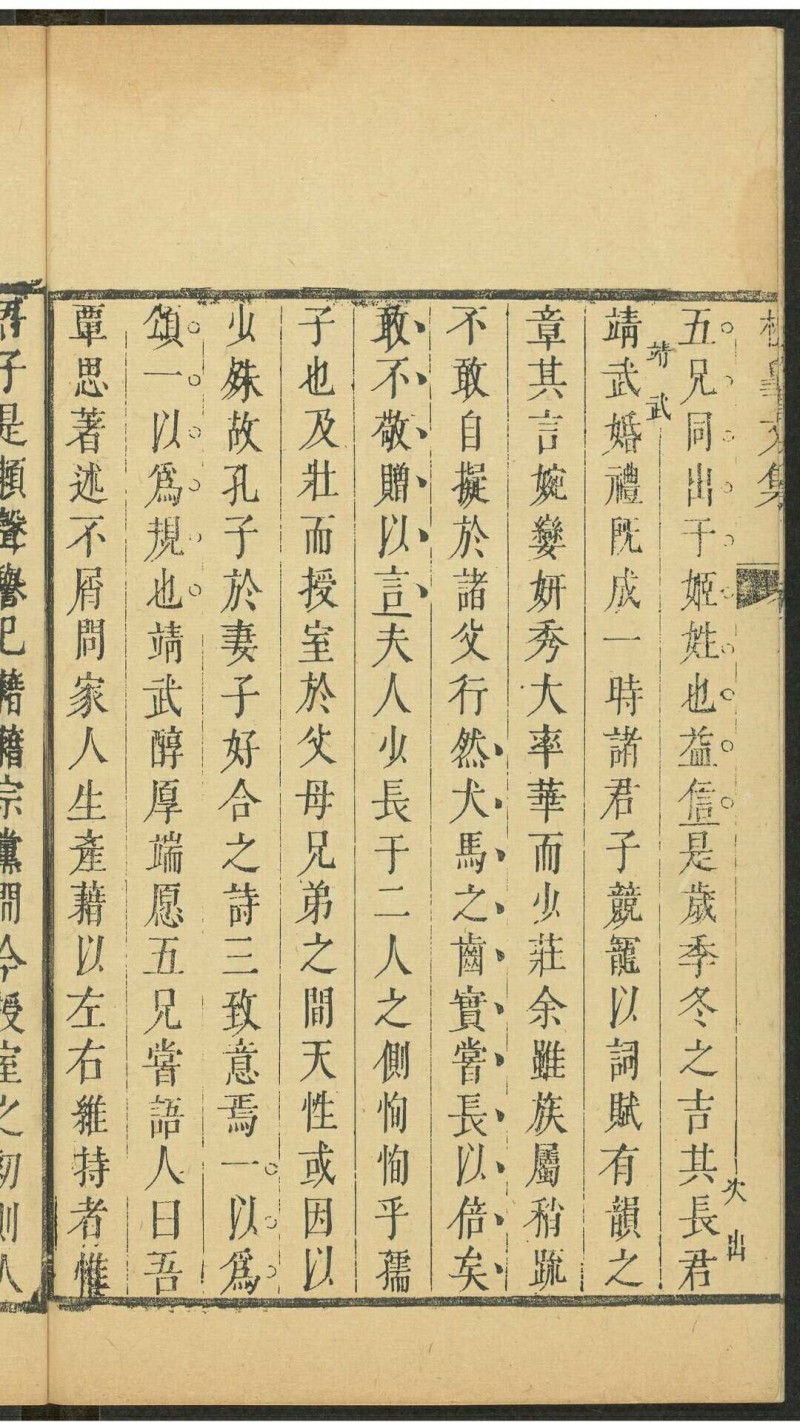 文集
五兄同出于姬姓也益信是歲季冬之吉其長君
次出
靖武
靖武婚禮旣成一時諸君子競寵以詞賦有韻之
章其言婉孌妍秀大率華而少莊余雖族屬稍踈
不敢自擬於諸父行然犬馬之齒實嘗長以倍矣
敢不敬贈以言夫人少長于二人之側恂恂乎孺
子也及壯而授室於父母兄弟之間天性或因以
少殊故孔子於妻子好合之詩三致意焉一以爲
頌一以爲規也靖武醇厚端愿五兄嘗語人曰吾
覃思著述不屑問家人生產藉以左右維持者惟
子是賴聲譽已藉藉宗黨間今授室之初則人